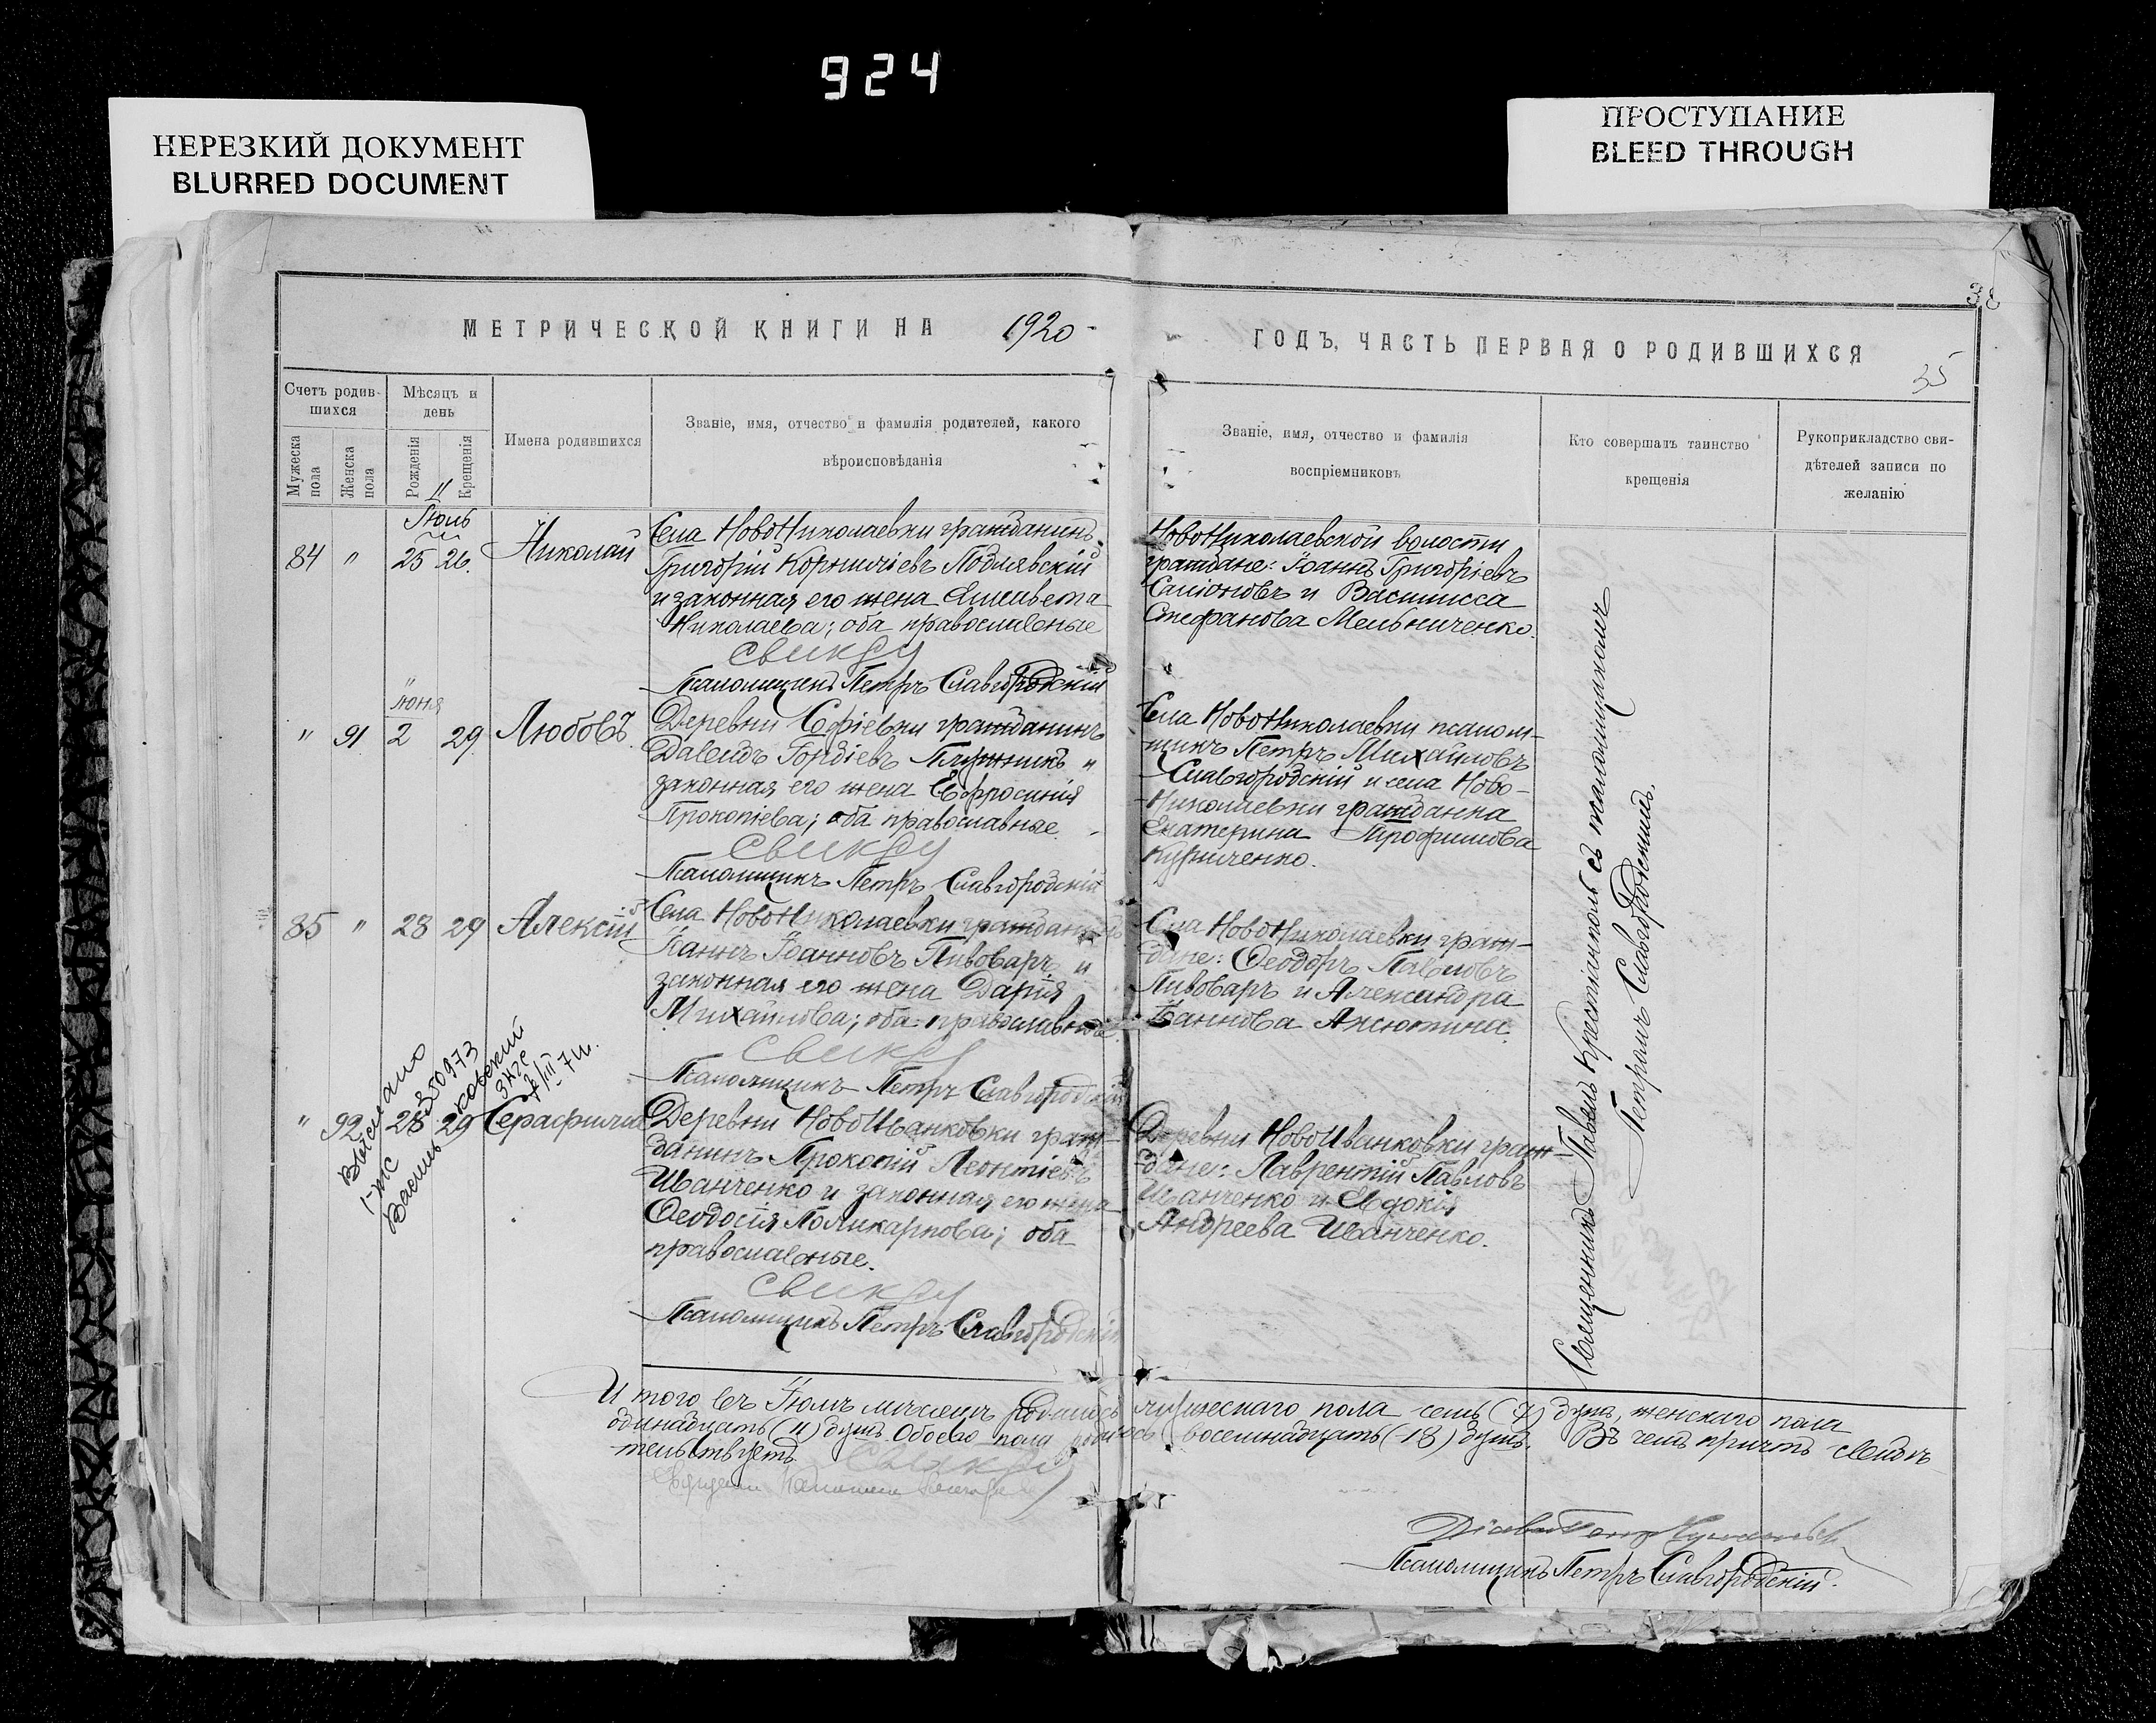 924
НЕРЕЗКИЙ ДОКУМЕНТ
BLURRED DOCUMENT
ПРОСТУПАНИЕ
BLEED THROUGH
38
МЕТРИЧЕСКОЙ КНИГИ НА 1920
ГОДЪ, ЧАСТЬ ПЕРВАЯ О РОДИВШИХСЯ
35
Счетъ родив-
шихся
Мужеска пола
Женска пола
Мѣсяцъ и
день
Рожденія
Крещенія
Имена родившихся
Званіе, имя, отчество и фамилія родителей, какого
вѣроисповѣданія
Званіе, имя, отчество и фамилія
воспріемниковъ
Кто совершалъ таинство
крещенія
Рукоприкладство сви-
дѣтелей записи по
желанію
Іюль
84 " 25 26. Николай
Села НовоНиколаевки гражданинъ
Григорій Корниліевъ Подлявскій
и законная его жена Елисавета
Николаева; оба православные
Псаломщикъ Петръ Славгородскій
НовоНиколаевской волости
граждане: Іоаннъ Григоріевъ
Самсоновъ и Василисса
Стефанова Мельниченко.
Іюня
" 91 2 29 Любовь
Деревни Софіевки гражданинъ
Давидъ Гордіевъ Плужникъ и
законная его жена Евфросинія
Прокопіева; оба православные.
Псаломщикъ Петръ Славгородскій
Села НовоНиколаевки псалом-
щикъ Петръ Михайловъ
Славгородскій и села Ново-
Николаевки гражданка
Екатерина Трофимова
Курниченко.
85 " 28 29 Алексій
Села НовоНиколаевки гражданинъ
Іоаннъ Іоанновъ Пивоваръ и
законная его жена Дарія
Михайлова; оба православные.
Псаломщикъ Петръ Славгородскій
Села НовоНиколаевки граж-
дане: Ѳеодоръ Павловъ
Пивоваръ и Александра
Іоаннова Аксютина.
Выслано
250973
7/III 7 
" 92 28 29 Серафима
Деревни НовоИванковки граж-
данинъ Прокопій Леонтіевъ
Иванченко и законная его жена
Ѳеодосія Поликарпова; оба
православные.
Псаломщикъ Петръ Славгородскій
Деревни НовоИванковки граж-
дане: Лаврентій Павловъ
Иванченко и Евдокія
Андреева Иванченко.
Священникъ Павелъ Крестіанполь съ псаломщикомъ
Петромъ Славгородскимъ.
И того въ Іюлѣ мѣсяцѣ родилось мужескаго пола семь (7) душъ, женскаго пола
одинадцать (11) душъ. Обоего пола родилось восемнадцать (18) душъ. Въ чемъ причтъ свидѣ-
тельствуетъ.
Псаломщикъ Петръ Славгородскій.